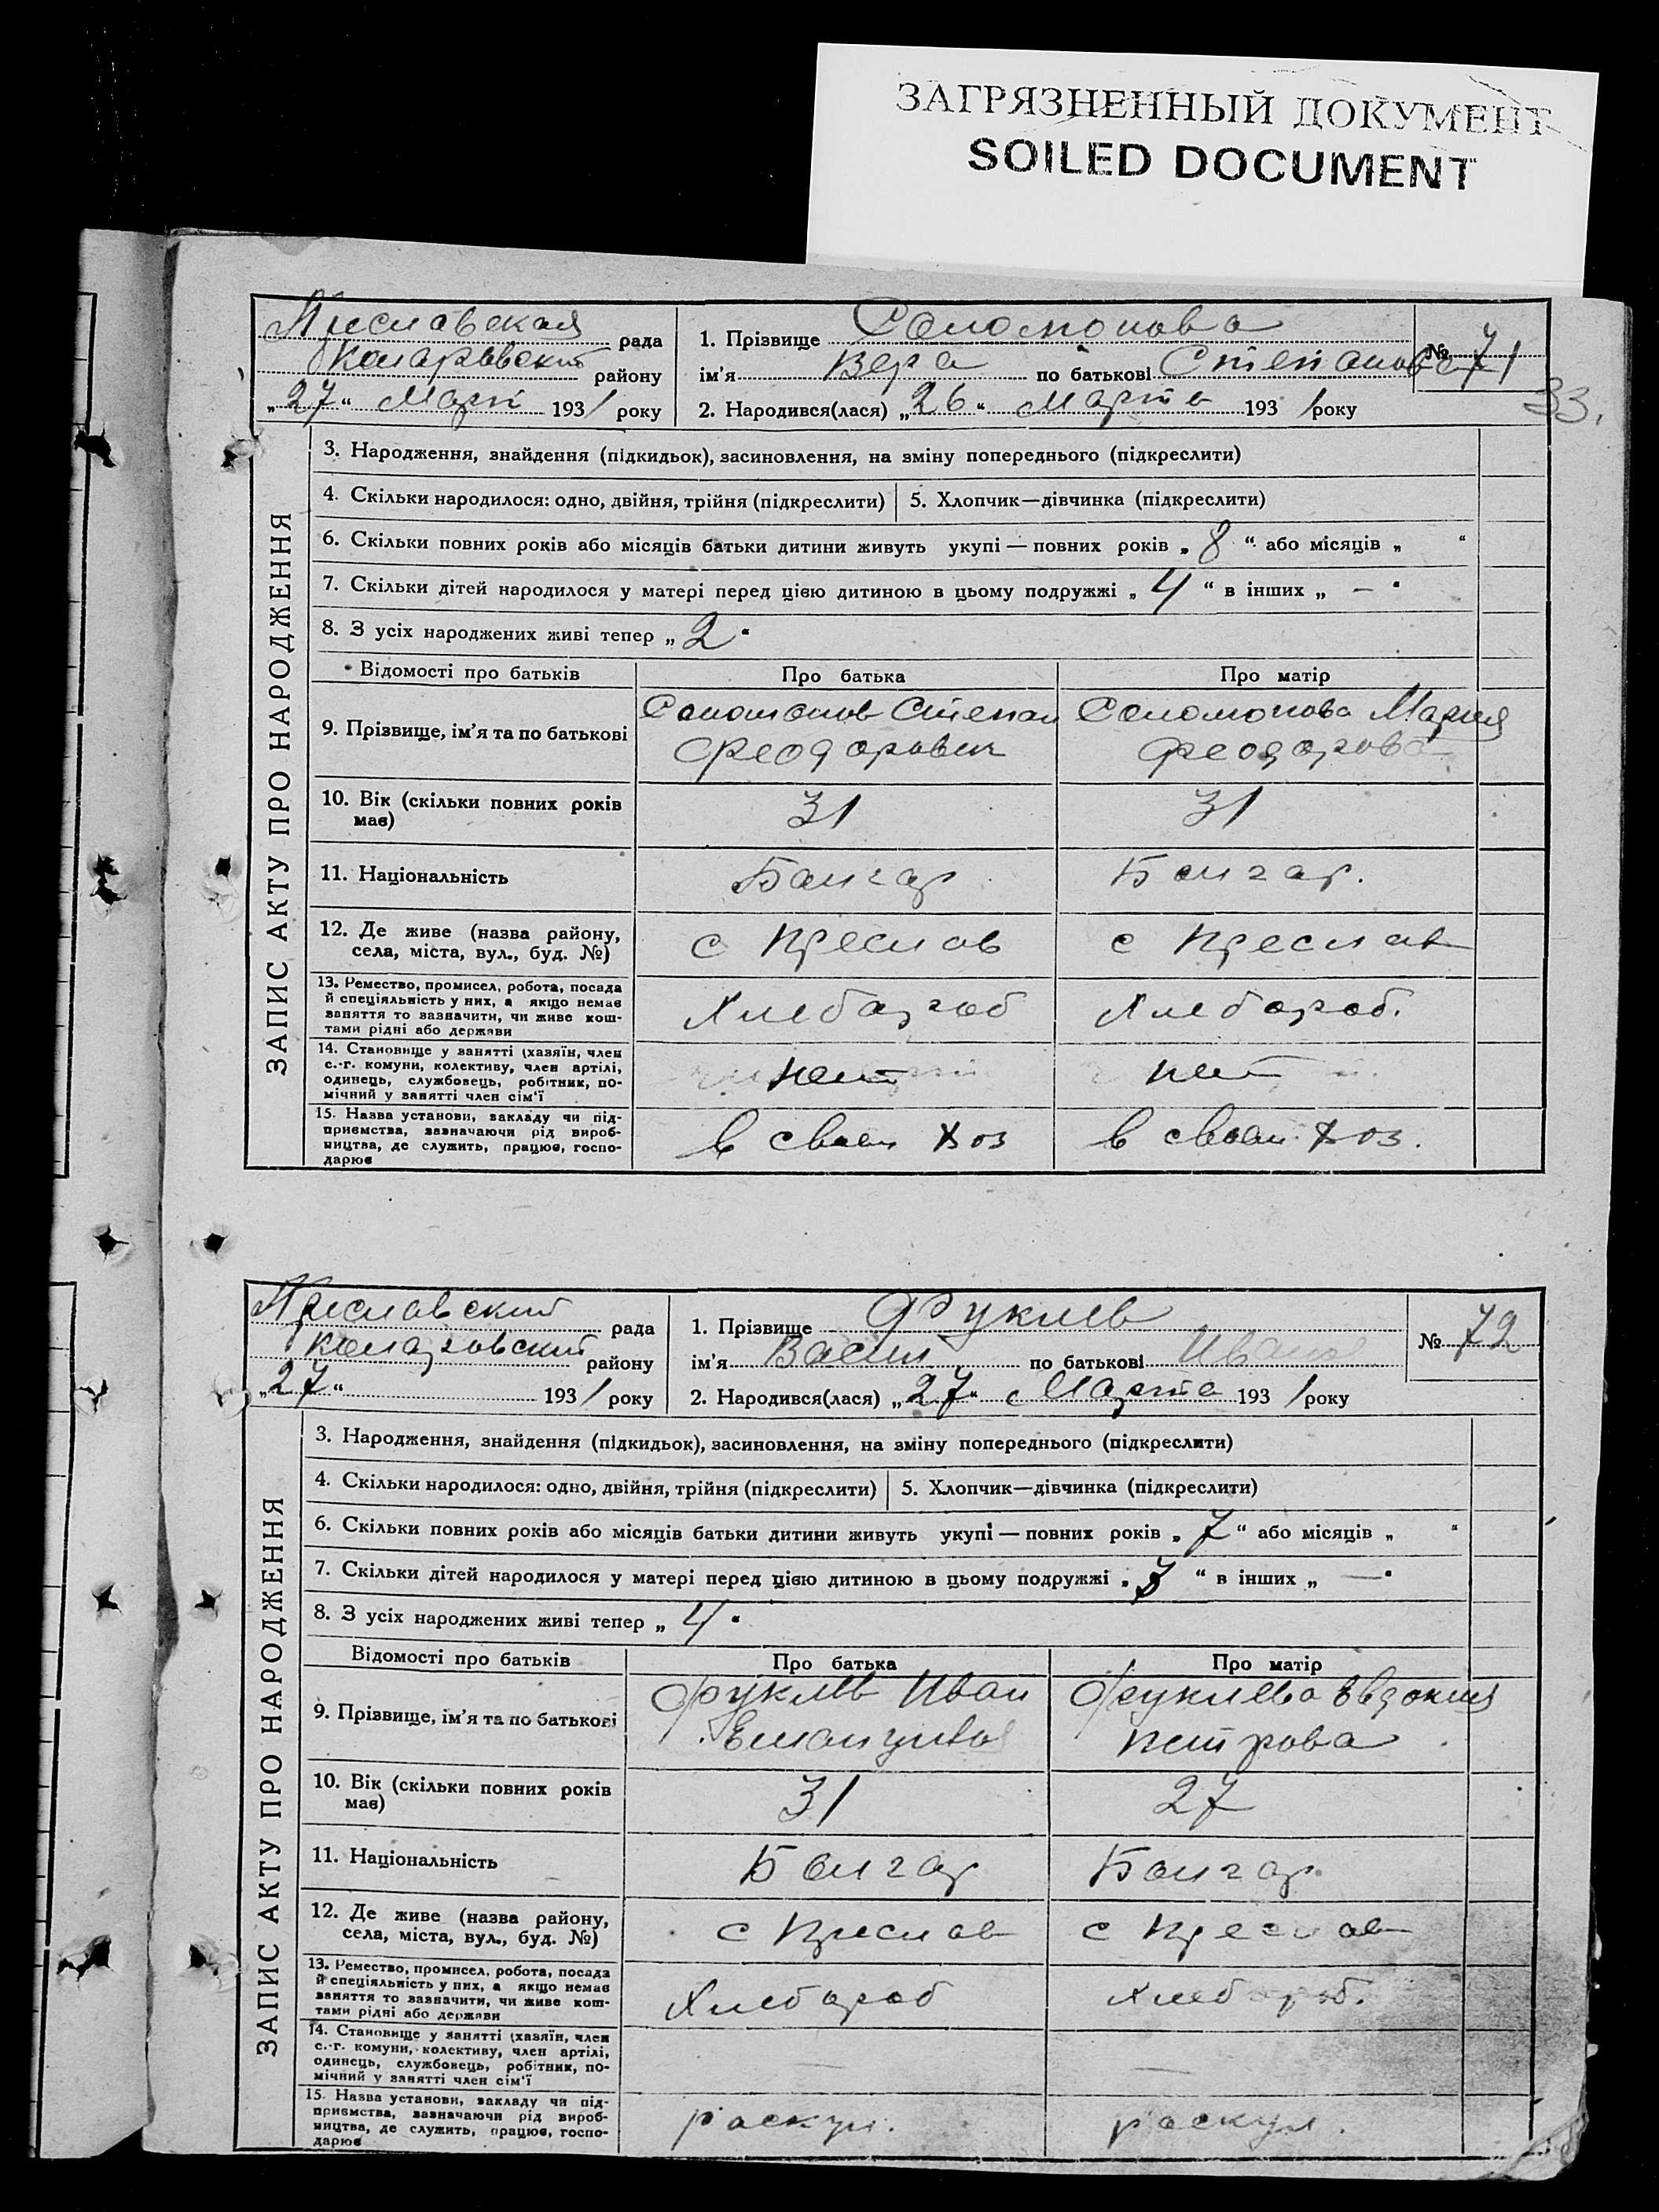 ЗАГРЯЗНЕННЫЙ ДОКУМЕНТ
SOILED DOCUMENT
33.
ЗАПИС АКТУ ПРО НАРОДЖЕННЯ
Преславская рада
Коларовский району
„27“ Март 1931 року
1. Прізвище Соломонова
ім'я Вера по батькові Степанова
2. Народився(лася) „26“ Марта 1931 року
№ 71
3. Народження, знайдення (підкидьок), засиновлення, на зміну попереднього (підкреслити)
4. Скільки народилося: одно, двійня, трійня (підкреслити) 5. Хлопчик—дівчинка (підкреслити)
6. Скільки повних років або місяців батьки дитини живуть укупі — повних років „8“ або місяців „ “
7. Скільки дітей народилося у матері перед цією дитиною в цьому подружжі „4“ в інших „—“
8. З усіх народжених живі тепер „2“
Відомості про батьків Про батька Про матір
9. Прізвище, ім'я та по батькові Соломонов Степан Феодорович Соломонова Мария Феодорова
10. Вік (скільки повних років має) 31 31
11. Національність Болгар Болгар.
12. Де живе (назва району, села, міста, вул., буд. №) с Преслав с Преслав
13. Ремество, промисел, робота, посада й спеціяльність у них, а якщо немає заняття то зазначити, чи живе коштами рідні або держави Хлебороб Хлебороб.
14. Становище у занятті (хазяїн, член с.-г. комуни, колективу, член артілі, одинець, службовець, робітник, помічний у занятті член сім'ї нет нет
15. Назва установи, закладу чи підприємства, зазначаючи рід виробництва, де служить, працює, господарює в своем хоз в своем хоз.
ЗАПИС АКТУ ПРО НАРОДЖЕННЯ
Преславский рада
Коларовский району
„27“ 1931 року
1. Прізвище Фуклев
ім'я Васил по батькові Иванов
2. Народився(лася) „27“ Марта 1931 року
№ 72
3. Народження, знайдення (підкидьок), засиновлення, на зміну попереднього (підкреслити)
4. Скільки народилося: одно, двійня, трійня (підкреслити) 5. Хлопчик—дівчинка (підкреслити)
6. Скільки повних років або місяців батьки дитини живуть укупі — повних років „7“ або місяців „ “
7. Скільки дітей народилося у матері перед цією дитиною в цьому подружжі „3“ в інших „—“
8. З усіх народжених живі тепер „4“
Відомості про батьків Про батька Про матір
9. Прізвище, ім'я та по батькові Фуклев Иван Фуклева Евдокия Петрова
10. Вік (скільки повних років має) 31 27
11. Національність Болгар Болгар.
12. Де живе (назва району, села, міста, вул., буд. №) с Преслав с Преслав
13. Ремество, промисел, робота, посада й спеціяльність у них, а якщо немає заняття то зазначити, чи живе коштами рідні або держави Хлебороб Хлебороб.
14. Становище у занятті (хазяїн, член с.-г. комуни, колективу, член артілі, одинець, службовець, робітник, помічний у занятті член сім'ї — —
15. Назва установи, закладу чи підприємства, зазначаючи рід виробництва, де служить, працює, господарює раскул. раскул.